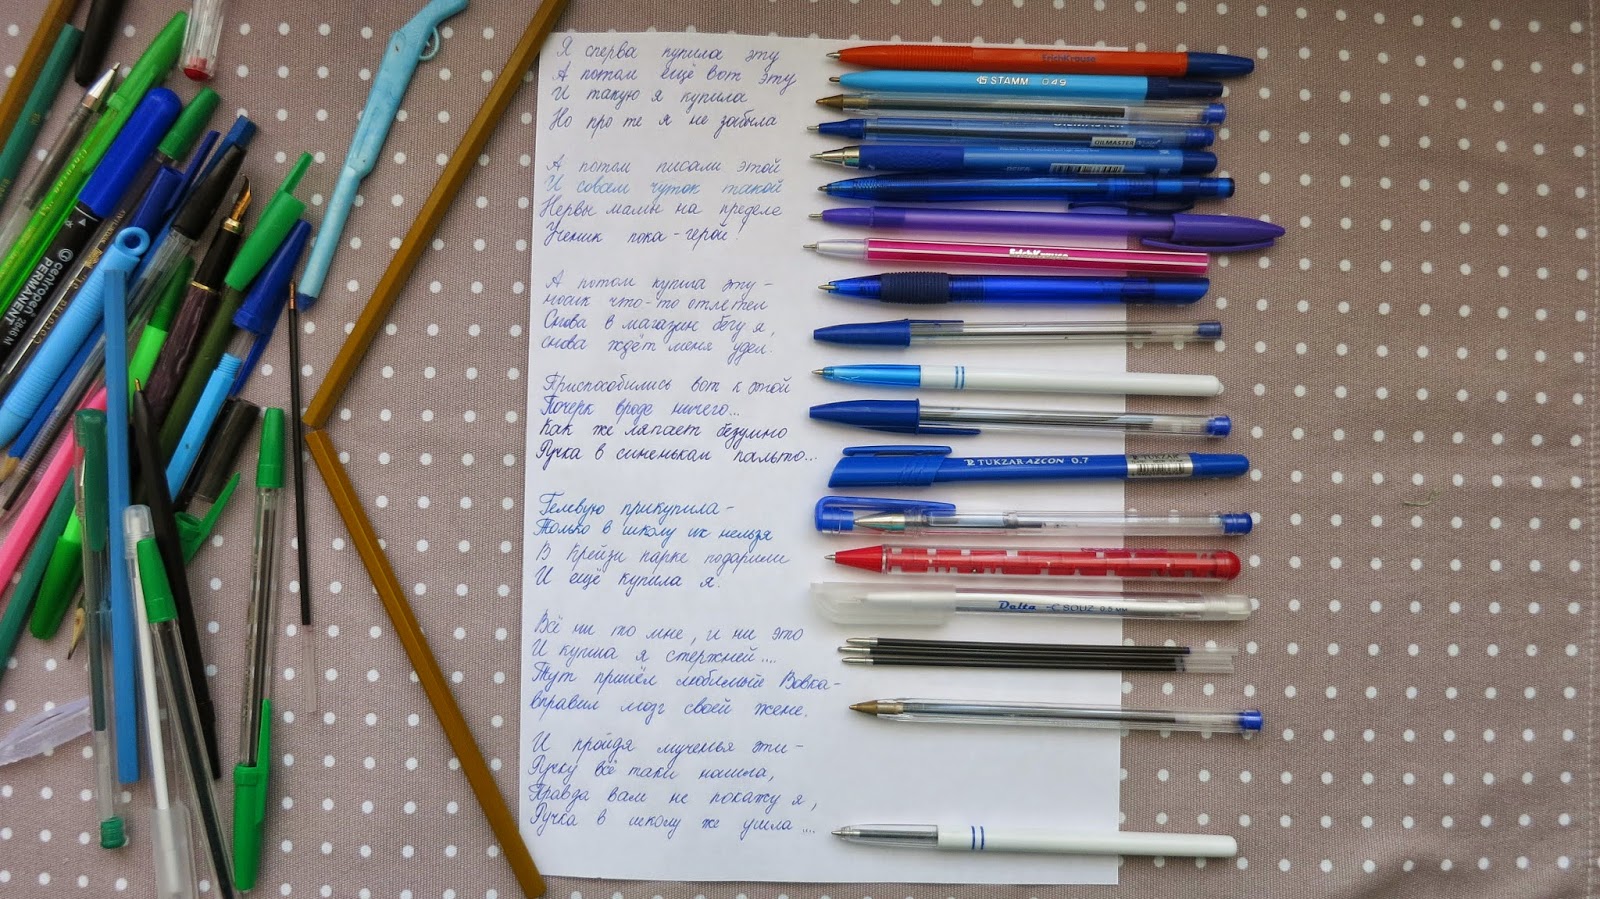 Я сперва купила эту
А потом ещё вот эту
И такую я купила
Но про те я не забыла
А потом писали этой
И совсем чуток такой
Нервы мамы на пределе
Ученик пока-герой!
А потом купила эту –
носик что-то отлетел
Снова в магазин бегу я,
снова ждёт меня удел.
Приспособились вот к этой
Почерк вроде ничего...
Как же ляпает безумно
Ручка в синеньком пальто...
Гелевую прикупила –
Только в школу их нельзя
В Крейзи парке подарили
И ещё купила я.
Всё ни то мне, и ни это
И купила я стержней....
Тут пришёл любимый Вовка –
вправил мозг своей жене.
И пройдя мученья эти –
Ручку всё таки нашла,
Правда вам не покажу я,
Ручка в школу же ушла....
ErichKrause
STAMM 049
OILMASTER
OILMASTER
ErichKrause
TUKZAR AZCON 0.7
TUKZAR
Delta SOUZ 0.5 мм
centropen
PERMANENT
2846 M